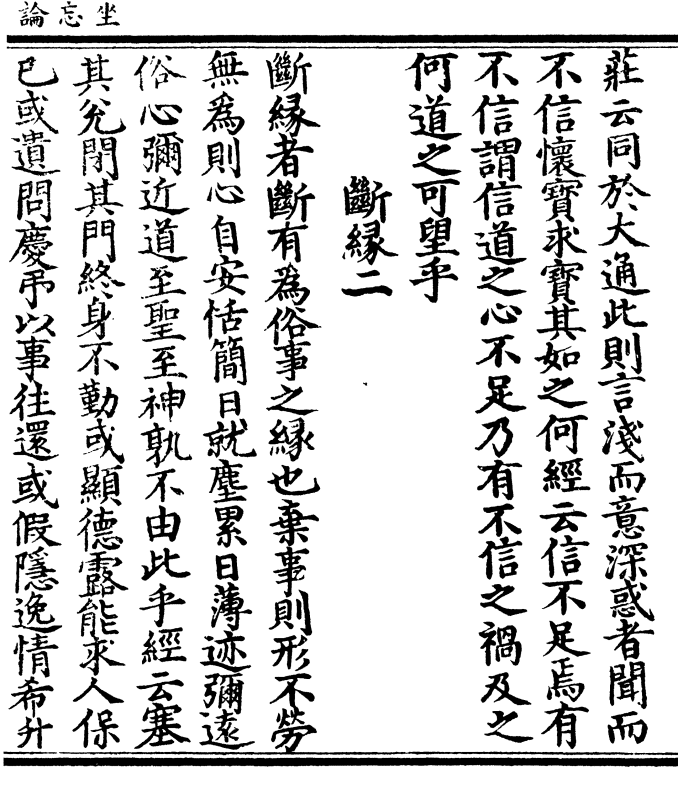 坐忘論
莊云同於大通此則言淺而意深惑者聞而
不信懷寶求寶其如之何經云信不足焉有
不信謂信道之心不足乃有不信之禍及之
何道之可望乎
斷緣二
斷緣者斷有為俗事之緣也棄事則形不勞
無為則心自安恬簡日就塵累日薄迹彌遠
俗心彌近道至聖至神孰不由此乎經云塞
其兊閉其門終身不勤或顯德露能求人保
巳或遺問慶弔以事往還或假隱逸情希升